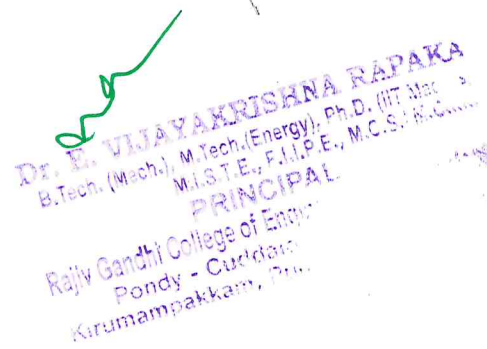 Dr. E. VIJAYAKRISHNA RAPAKA
B.Tech. (Mech.), M.Tech.(Energy), Ph.D. (IIT
M.I.S.T.E., F.I.I.P.E., M.C.S.I
PRINCIPAL
Rajiv Gandhi College of
Pondy -
Kirumampakkam,